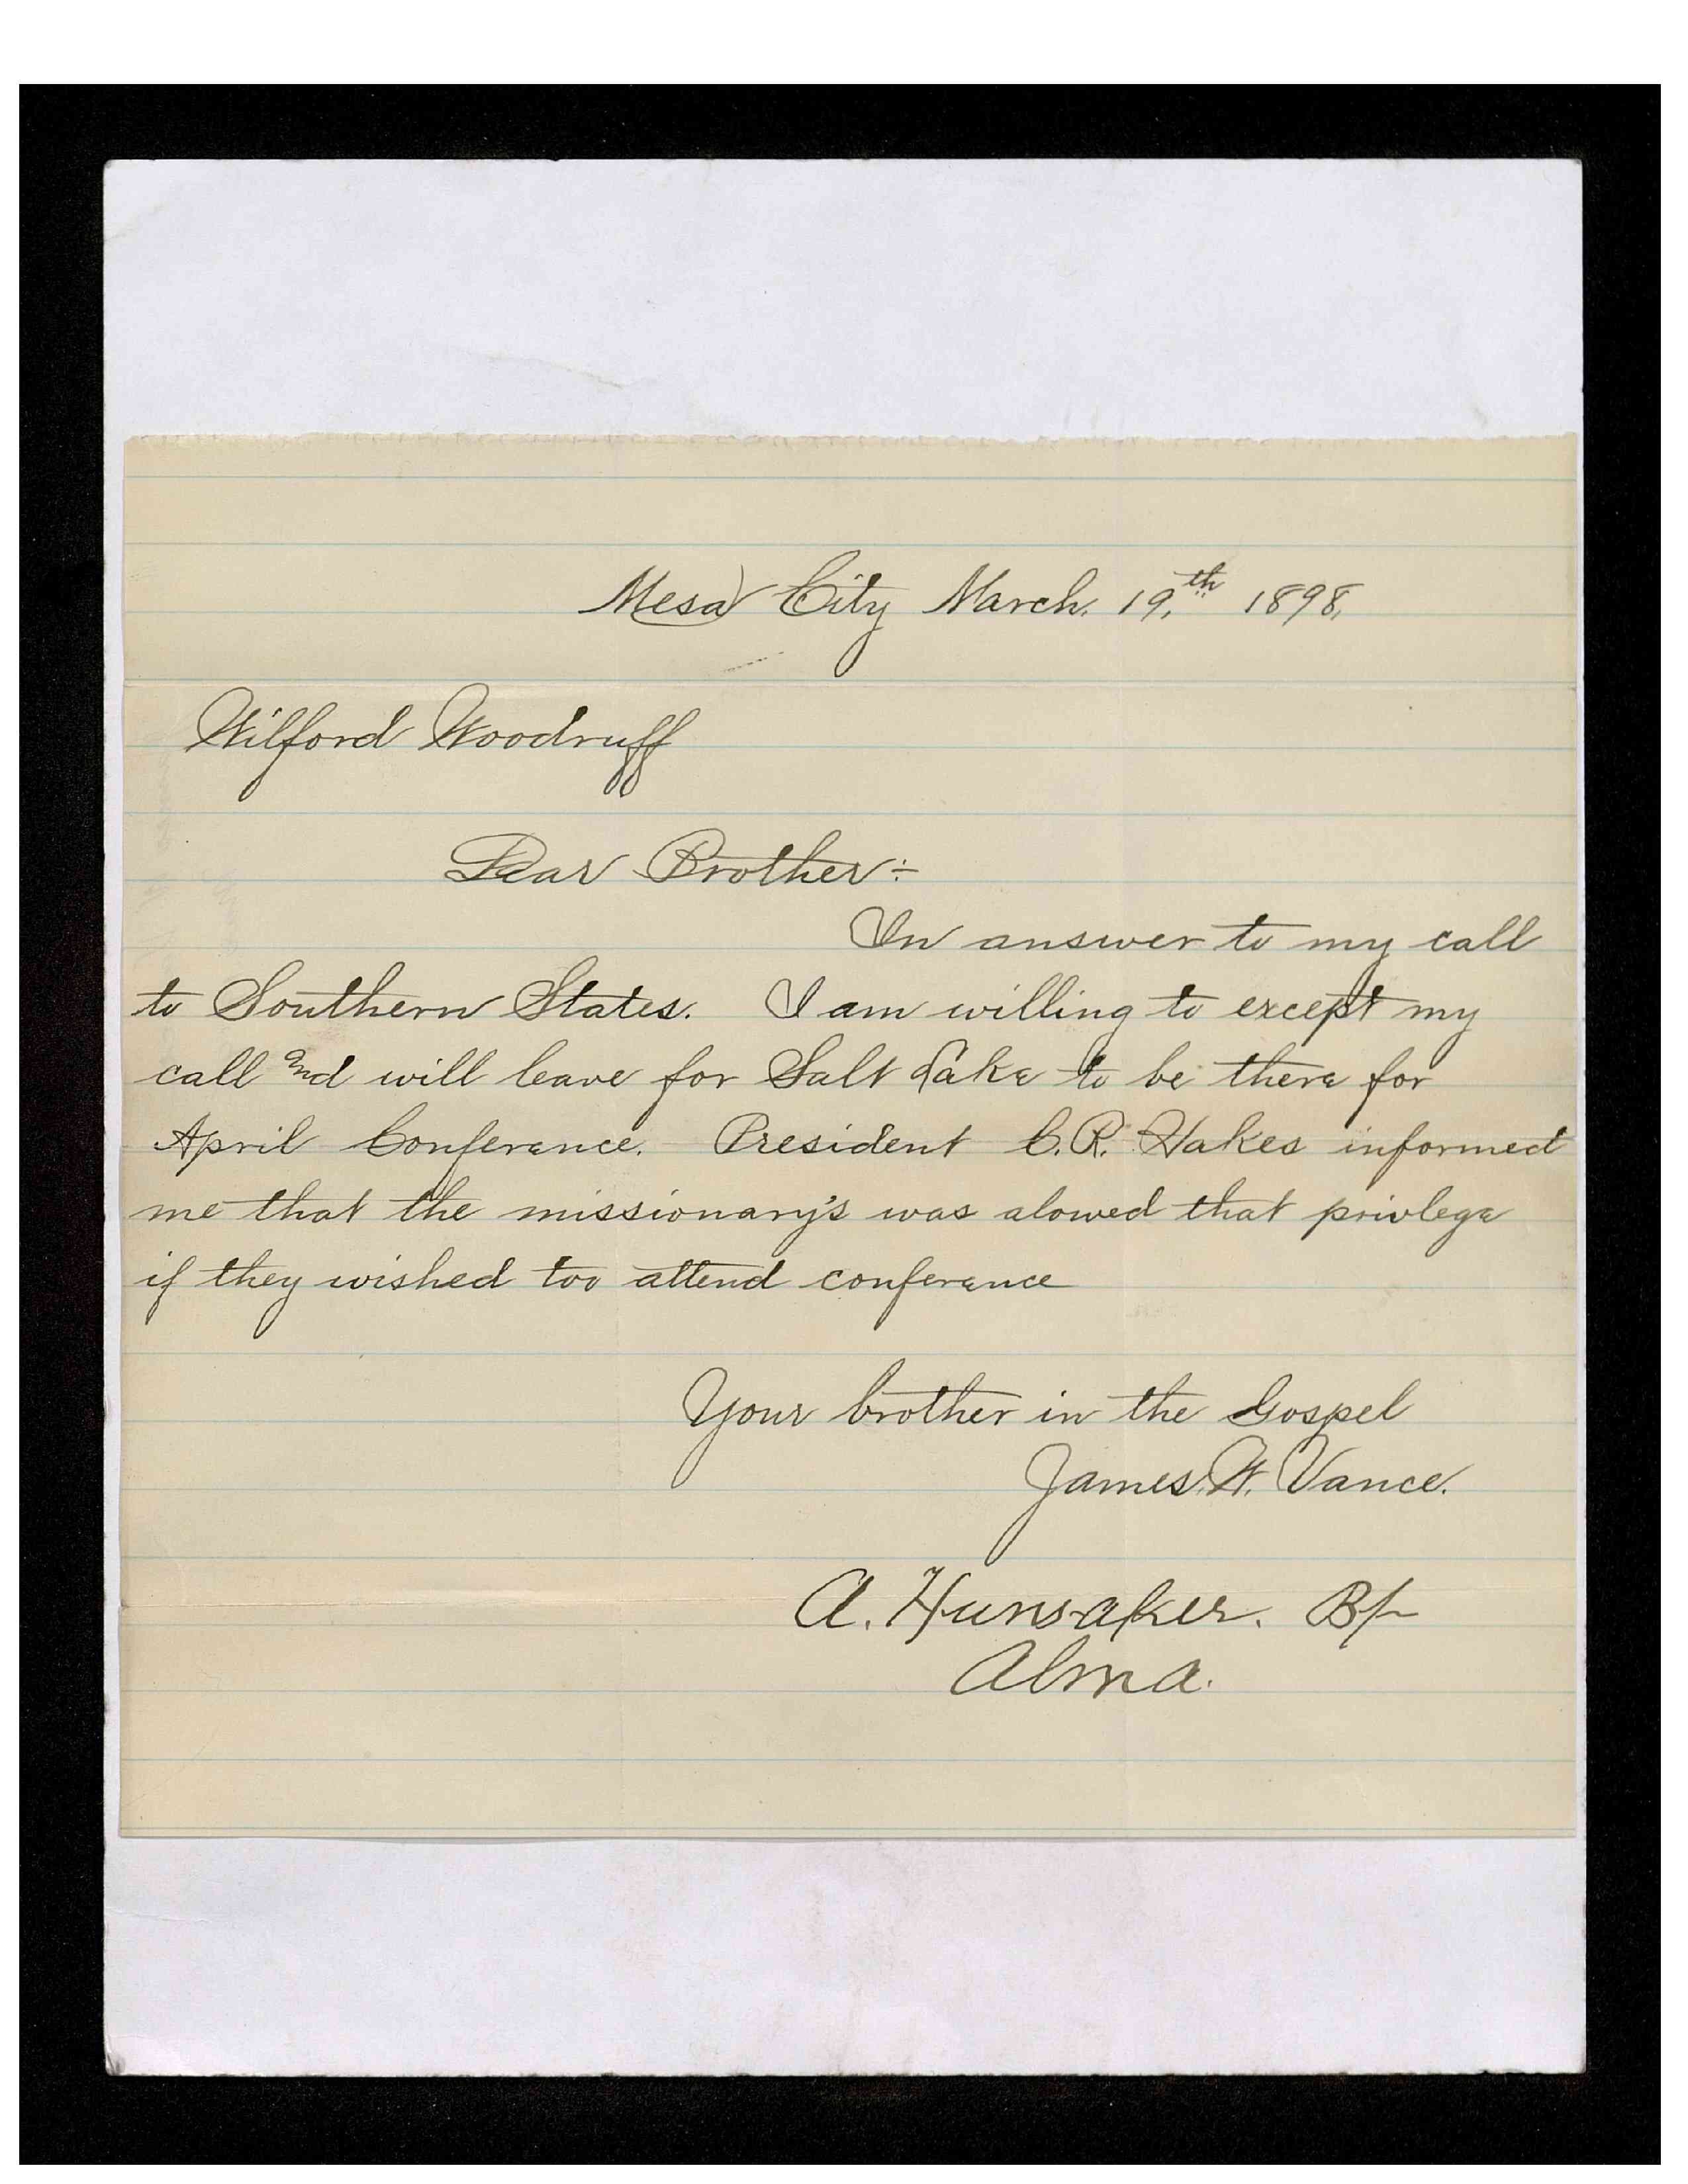 Mesa City March. 19.th 1898.
Wilford Woodruff
Dear Brother:-
In answer to my call
to Southern States. I am willing to except my
call and will leave for Salt Lake to be there for
April Conference. President C.R. Hakes informed
me that the missionary's was alowed that privlege
if they wished too attend conference
Your brother in the Gospel
James. W. Vance.
A. Hunsaker. Bp
Alma.